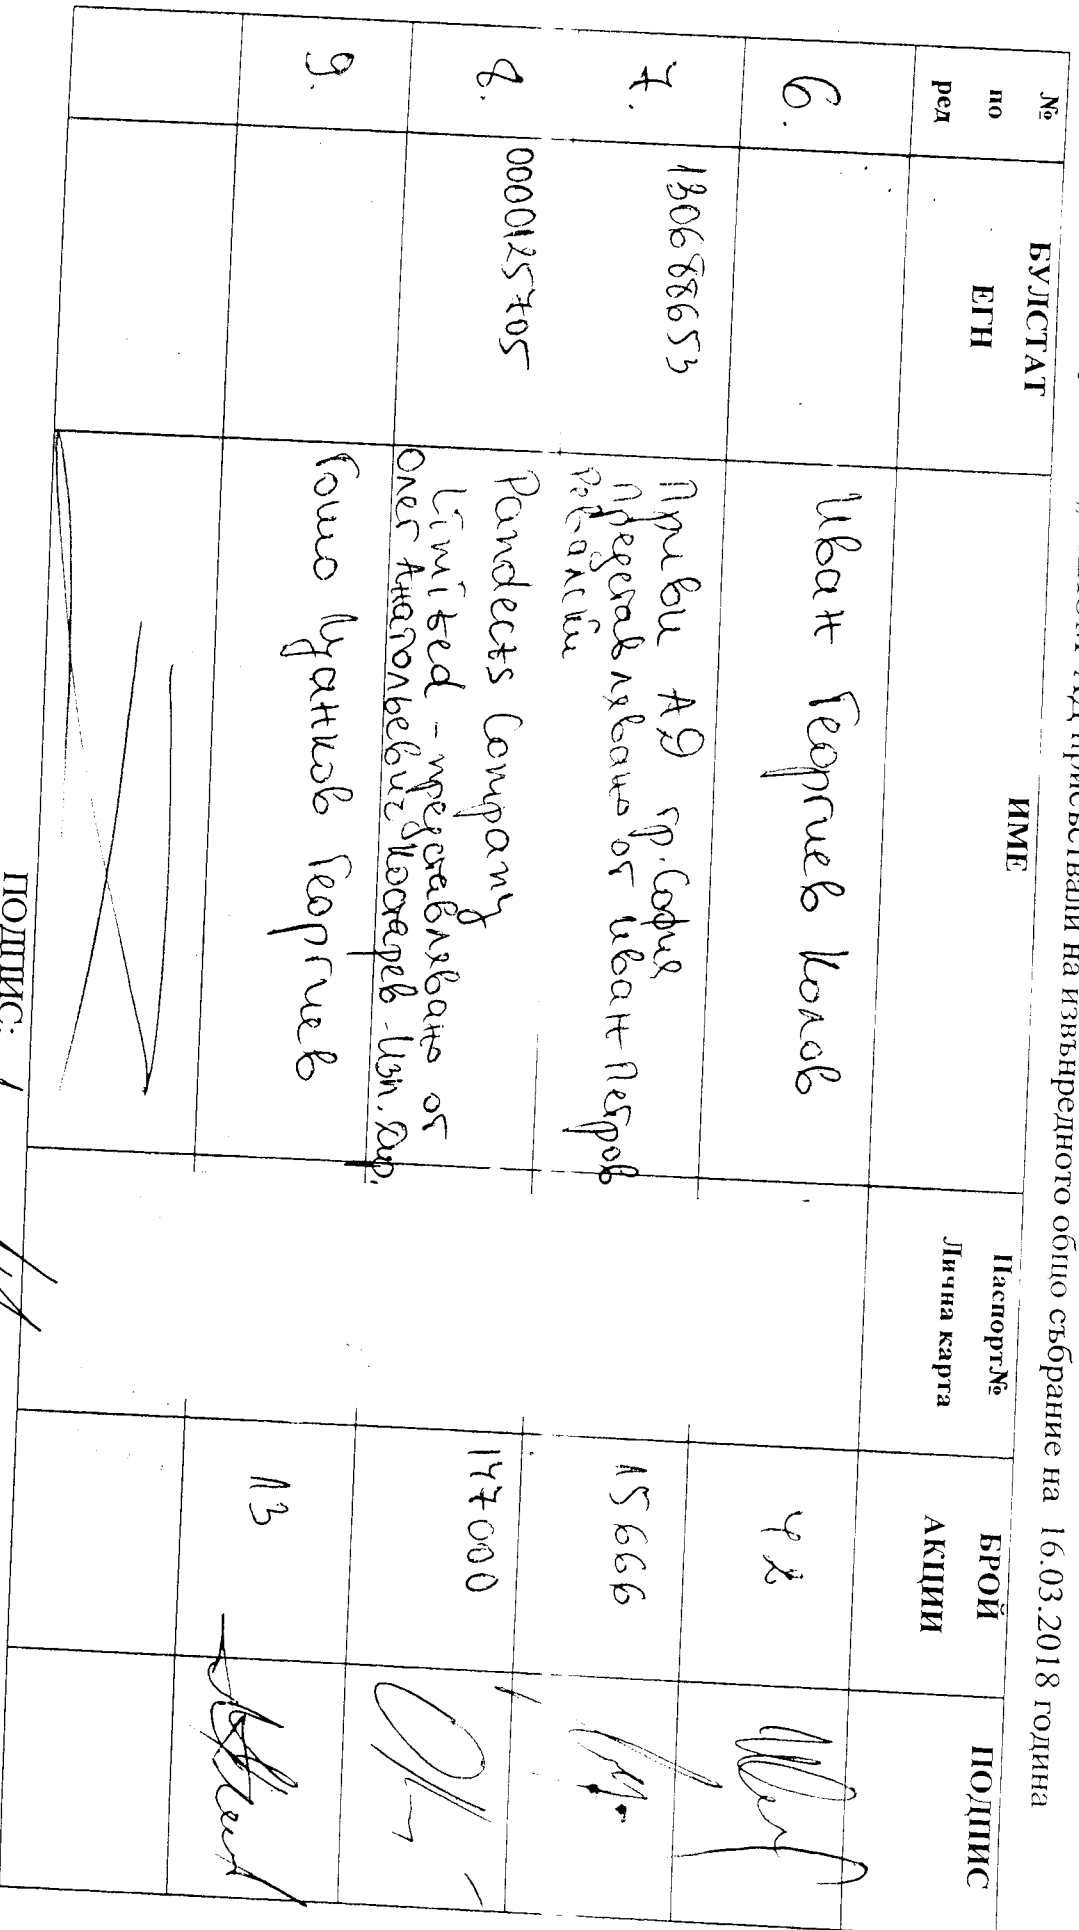 АД присъствали на извънредното общо събрание на 16.03.2018 година
№ по ред БУЛСТАТ ЕГН ИМЕ Паспорт№ Лична карта БРОЙ АКЦИИ ПОДПИС
6. Иван Георгиев Колов 42
7. 130688653 Приви АД гр. София 15666
представлявано от Иван Петров
8. 0000125705 Pandects Company 147000
Limited - представлявано от
Олег Анатольевич Костарев - Изп. дир.
9. Гошо Цанков Георгиев 13
ПОДПИС: